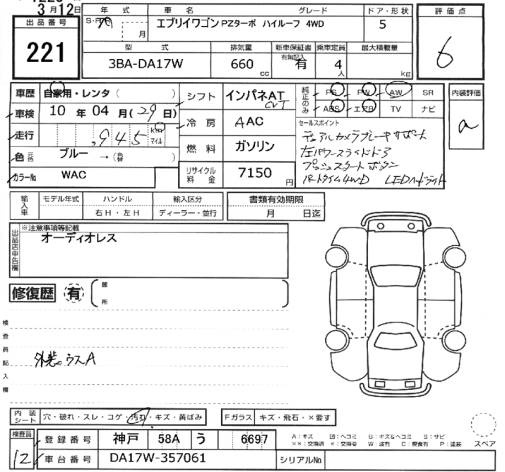 3月12日
出品番号
221
車名
グレード
ドア・形状
評価点
年
月
エブリイワゴン PZターボ ハイルーフ 4WD
5
6
型式
排気量
新車保証書
有無記入
乗車定員
最大積載量
3BA-DA17W
660 cc
有
4 人
kg
車歴 自家用・レンタ ( )
シフト インパネAT CVT
純正のみ PS PW AW SR
ABS エアB TV ナビ
内装評価
a
車検 10 年 04 月 (29日)
冷房 AAC
セールスポイント
走行 945 km マイル
デュアルカメラブレーキサポート
左パワースライドドア
プッシュスタートボタン
パートタイム4WD LEDヘッドライト
色 元色 ブルー → (替 )
燃料 ガソリン
カラーNo WAC
リサイクル料金 7150円
輸入車 モデル年式 ハンドル 輸入区分
右H・左H ディーラー・並行
書類有効期限
月 日迄
出品店申告欄
※注意事項等記載
オーディオレス
修復歴 有 (箇所 )
検査員記入欄
外装ウスA
内装シート 穴・破れ・スレ・コゲ・汚れ・キズ・黄ばみ
Fガラス キズ・飛石・×要す
検査員
12
登録番号 神戸 58A う 6697
車台番号 DA17W-357061
シリアルNo
スペア